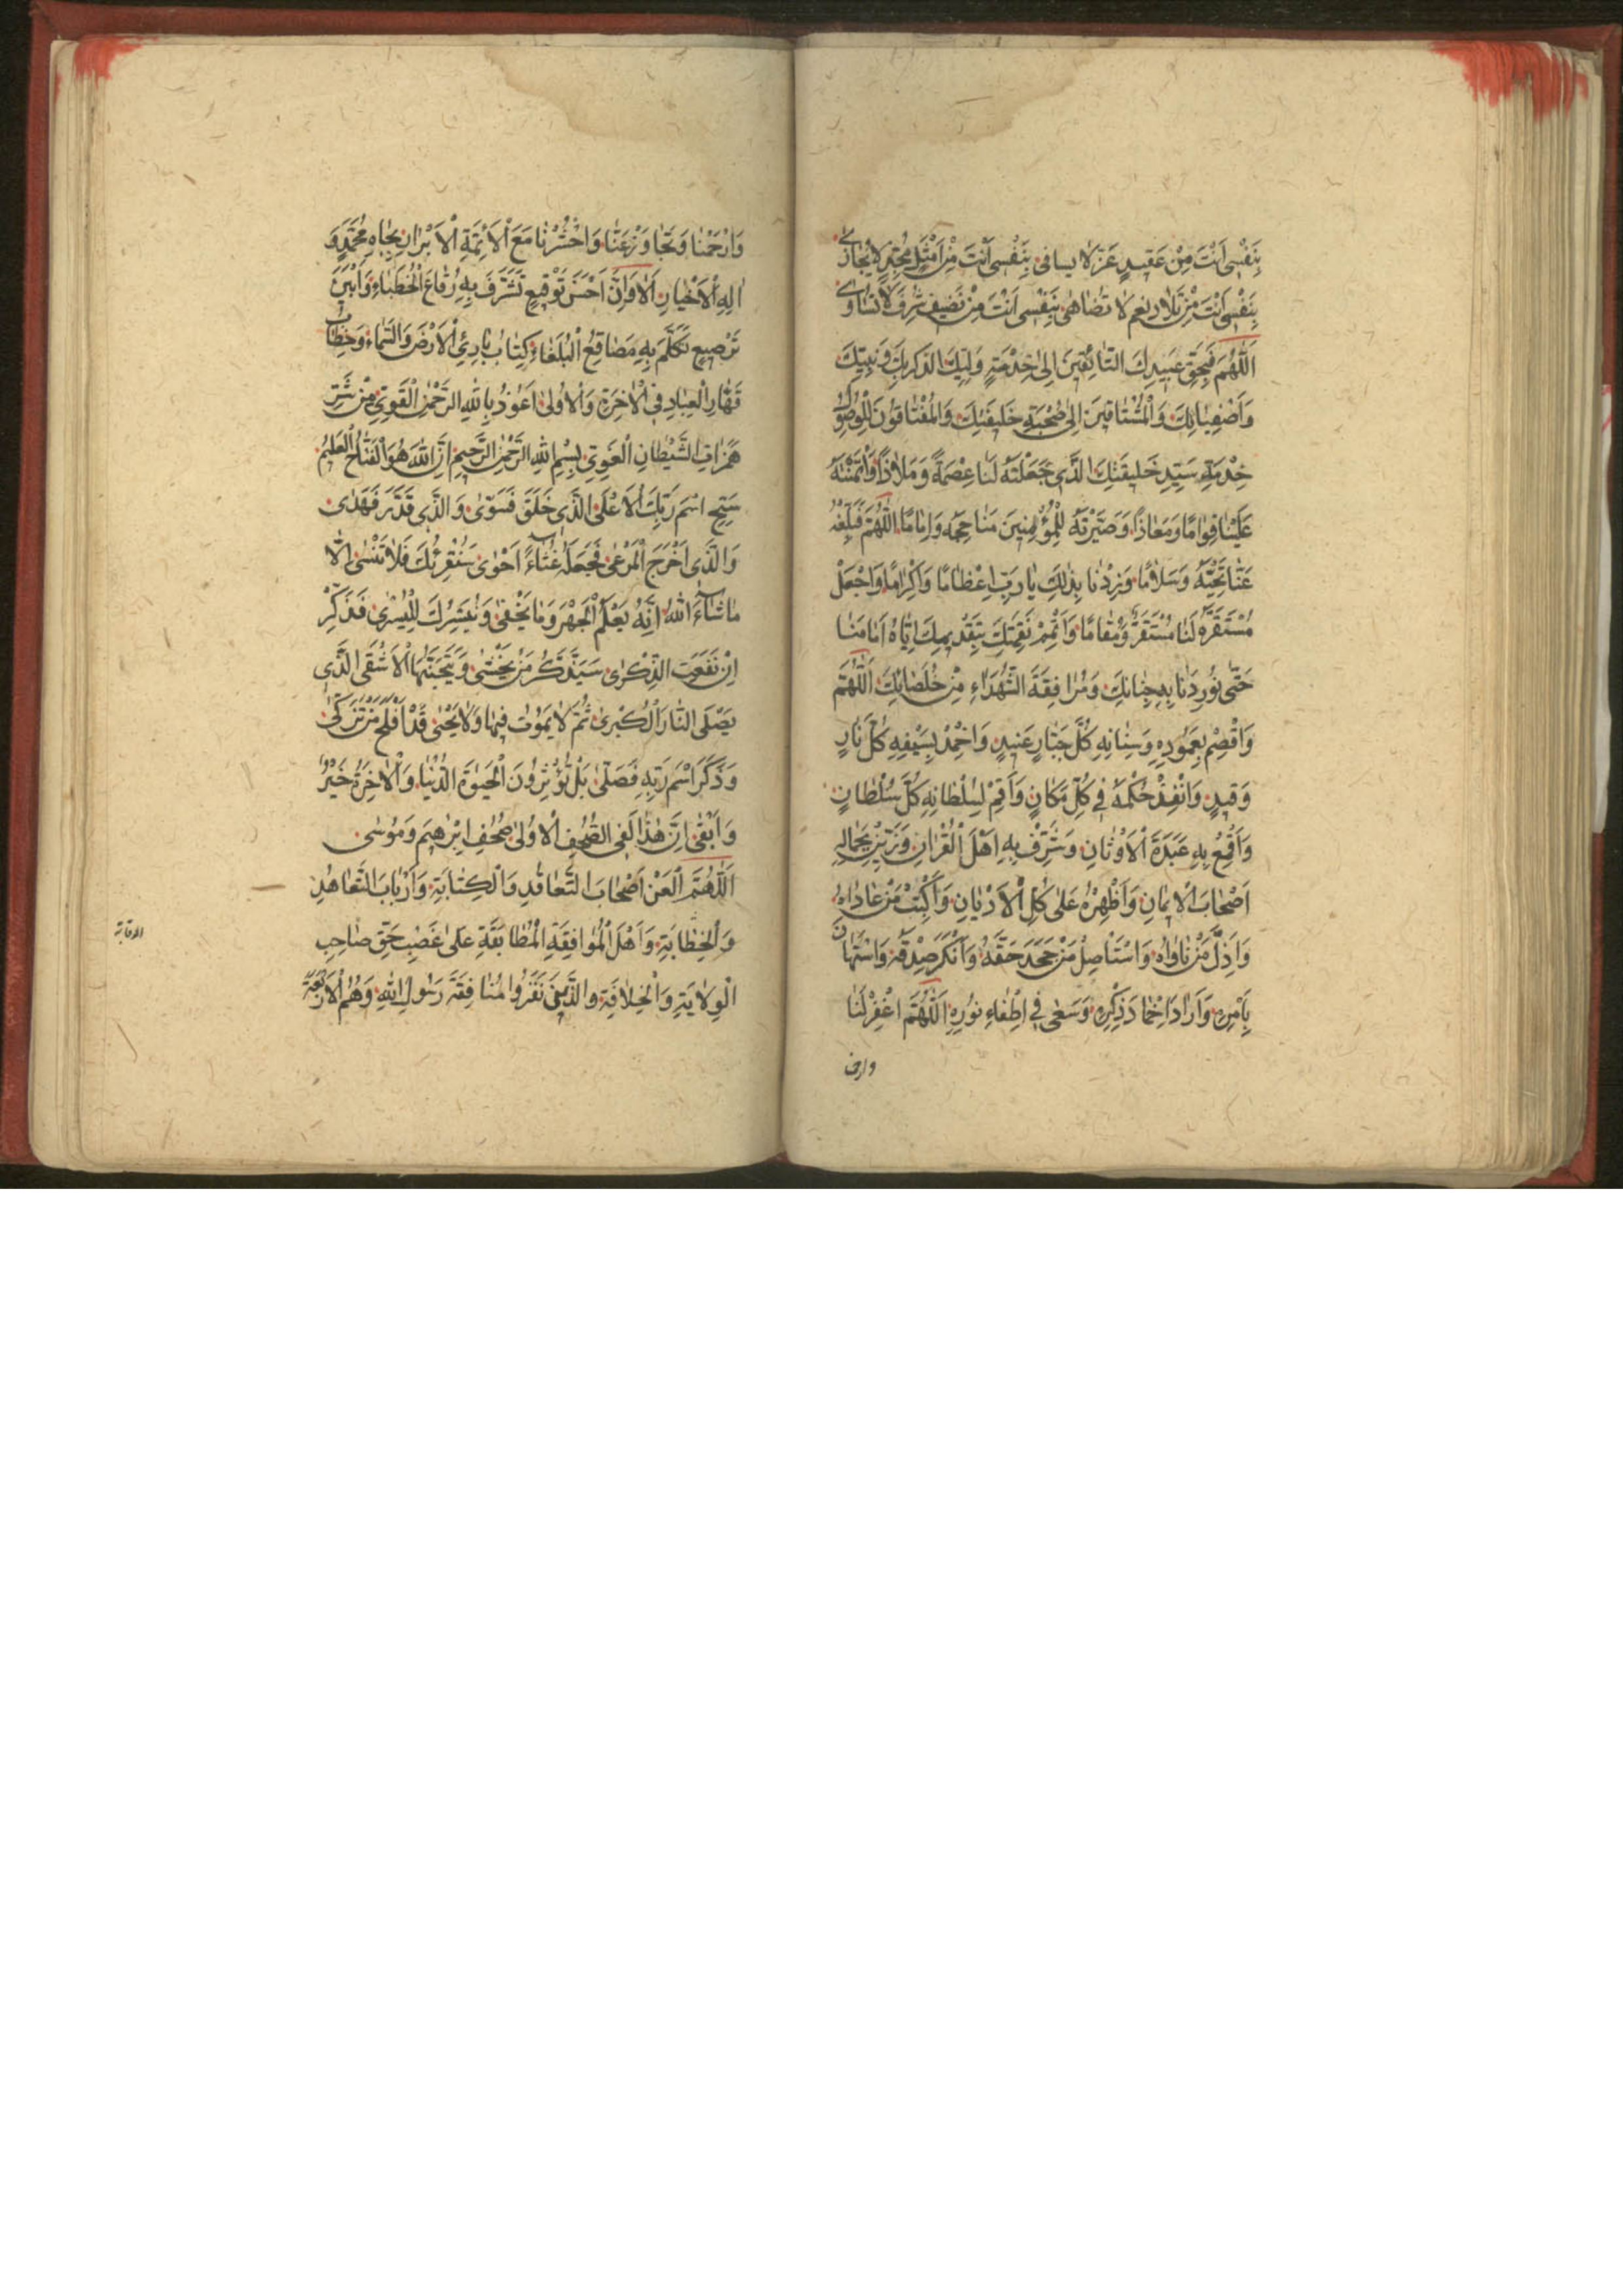 بِنَفْسِی اَنْتَ مِنْ عَقیدِ عِزٍّ لا یسافی بِنَفْسِی اَنْتَ مِنْ اَمْثَلِ مُجْدٍ لایُجازی
بِنَفْسِی اَنْتَ مِنْ تَلادِ نِعَمٍ لا تُضاهی بِنَفْسِی اَنْتَ مِنْ نَصیفِ شَرَفٍ لا تُساوی
اَللّٰهُمَّ فَبِحَقِّ عَبیدِكَ التّائِقینَ اِلیٰ خِدْمَةِ وَلِیِّكَ الذكر بك ونبیك
وَاَصْفِیائِكَ وَالْمُشْتاقینَ اِلیٰ صُحْبَةِ خَلیفَتِكَ وَالْمُفْتاقُونَ لِلْوُصُولِ
خِدْمَةِ سَیِّدِ خَلیقَتِكَ الَّذی جَعَلْتَهُ لَنا عِصْمَةً وَمَلاذًا وَاَتْمَمْتَهُ
عَلَیْنا قِوامًا وَمَعاذًا وَصَیَّرْتَهُ لِلْمُؤْمِنینَ مَنا حجه وَاِمامًا اَللّٰهُمَّ فَبَلِّغْهُ
عَنّا تَحِیَّةً وَسَلامًا وَزِدْنا بِذٰلِكَ یا رَبِّ اِعْظامًا وَاِكْرامًا وَاجْعَلْ
مُسْتَقَرَّهُ لَنا مُسْتَقَرًّا وَمُقامًا وَاَتْمِمْ نِعْمَتَكَ بِتَقْدیمِكَ اِیّاهُ اَمامَنا
حَتّیٰ تُورِدَنا بِهِ جِنانَكَ وَمُرافَقَةَ الشُّهَداءِ مِنْ خُلَصائِكَ اَللّٰهُمَّ
وَاقْصِمْ بِعَمُودِهِ وَسِنانِهِ كُلَّ جَبّارٍ عَنیدٍ وَاخْمِدْ بِسَیْفِهِ كُلَّ نارٍ
وَقیدٍ وَانْفِذْ حُكْمَهُ فی كُلِّ مَكانٍ وَاَقِمْ لِسُلْطانِهِ كُلَّ سُلْطانٍ
وَاَقْمِعْ بِهِ عَبَدَةَ الْاَوْثانِ وَشَرِّفْ بِهِ اَهْلَ الْقُرْانِ وَزَیِّنْ بِجَمالِهِ
اَصْحابَ الْایمانِ وَاَظْهِرْهُ عَلیٰ كُلِّ الْاَدْیانِ وَاَكْبِتْ مَنْ عاداهُ
وَاَذِلَّ مَنْ ناواهُ وَاسْتَاْصِلْ مَنْ جَحَدَ حَقَّهُ وَاَنْكَرَ صِدْقَهُ وَاسْتَهانَ
بِاَمْرِهِ وَاَرادَ اِخْمادَ ذِكْرِهِ وَسَعیٰ فی اِطْفاءِ نُورِهِ اَللّٰهُمَّ اغْفِرْ لَنا
وارحمنا
وَارْحَمْنا وَتَجاوَزْ عَنّا وَاحْشُرْنا مَعَ الْاَئِمَّةِ الْاَبْرارِ بِجاهِ مُحَمَّدٍ وَ
الِهِ الْاَخْیارِ اَلا وَاِنَّ اَحْسَنَ تَوْقیعٍ تَشَرَّفَ بِهِ رُقاعُ الْخُطَباءِ وَاَبْیَنَ
تَرْصیعٍ تَكَلَّمَ بِهِ مَصاقِعُ الْبُلَغاءِ كِتابُ بادِئِ الْاَرْضِ وَالسَّماءِ وَخِطابُ
قَهّارِ الْعِبادِ فِی الْاخِرَةِ وَالْاُولیٰ اَعُوذُ بِاللّٰهِ الرَّحْمٰنِ الْقَوِیِّ مِنْ شَرِّ
هَمَزاتِ الشَّیْطانِ الْغَوِیِّ بِسْمِ اللّٰهِ الرَّحْمٰنِ الرَّحیمِ اِنَّ اللّٰهَ هُوَ الْفَتّاحُ الْعَلیمُ
سَبِّحِ اسْمَ رَبِّكَ الْاَعْلَی الَّذی خَلَقَ فَسَوّیٰ وَالَّذی قَدَّرَ فَهَدیٰ
وَالَّذی اَخْرَجَ الْمَرْعیٰ فَجَعَلَهُ غُثاءً اَحْویٰ سَنُقْرِئُكَ فَلا تَنْسیٰ اِلّا
ما شاءَ اللّٰهُ اِنَّهُ یَعْلَمُ الْجَهْرَ وَما یَخْفیٰ وَنُیَسِّرُكَ لِلْیُسْریٰ فَذَكِّرْ
اِنْ نَفَعَتِ الذِّكْریٰ سَیَذَّكَّرُ مَنْ یَخْشیٰ وَیَتَجَنَّبُهَا الْاَشْقَی الَّذی
یَصْلَی النّارَ الْكُبْریٰ ثُمَّ لا یَمُوتُ فیها وَلا یَحْییٰ قَدْ اَفْلَحَ مَنْ تَزَكّیٰ
وَذَكَرَ اسْمَ رَبِّهِ فَصَلّیٰ بَلْ تُؤْثِرُونَ الْحَیٰوةَ الدُّنْیا وَالْاخِرَةُ خَیْرٌ
وَاَبْقیٰ اِنَّ هٰذا لَفِی الصُّحُفِ الْاُولیٰ صُحُفِ اِبْرٰهیمَ وَمُوسیٰ
اَللّٰهُمَّ الْعَنْ اَصْحابَ التَّعاقُدِ وَالْكِتابَةِ وَاَرْبابَ التَّعاهُدِ
وَالْخِطابَةِ وَاَهْلَ الْمُوافَقَةِ الْمُطابَقَةِ عَلیٰ غَصْبِ حَقِّ صاحِبِ
الْوِلایَةِ وَالْخِلافَةِ وَالَّذینَ نَفَرُوا مُنافِقَةَ رَسُولِ اللّٰهِ وَهُمُ الْاَرْبَعَةَ